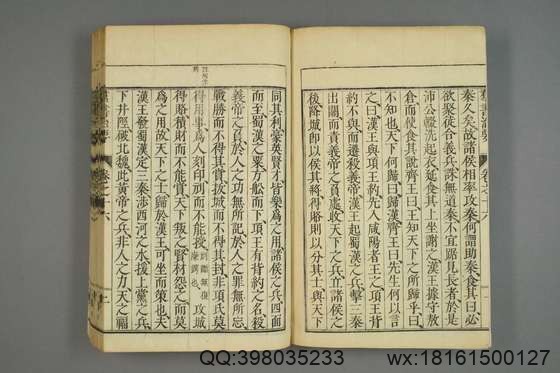 秦久矣故諸侯相率攻秦何謂助秦食其曰必
欲聚徒合義兵誅無道秦不宜踞見長者於是
沛公輟洗起衣延食其上坐謝之漢王據守敖
倉而使食其說齊王曰王知天下之所歸乎曰
不知也天下何歸曰歸漢齊王曰先生何以言
之曰漢王與項王約先入咸陽者王之項王背
約不與而遷殺義帝漢王起蜀漢之兵擊三秦
出關而責義帝之負處收天下之兵立諸侯之
後降城即以侯其將得賂則以分其士與天下
同其利豪英賢才皆樂爲之用諸侯之兵四面
而至蜀漢之粟方舩而下項王有背約之名殺
義帝之負於人之功無所記於人之罪無所忘
戰勝而不得其賞拔城而不得其封非項氏莫
得用事爲人刻印刓而不能授刓斷無復廉鍔也攻城
得賂積財而不能賞天下叛之賢材怨之而莫
爲之用故天下之士歸於漢王可坐而策也夫
漢王發蜀漢定三秦涉西河之水援上黨之兵
下井陘破北魏此黃帝之兵非人之力天之福
卷之十六
QQ:398035233
wx:18161500127